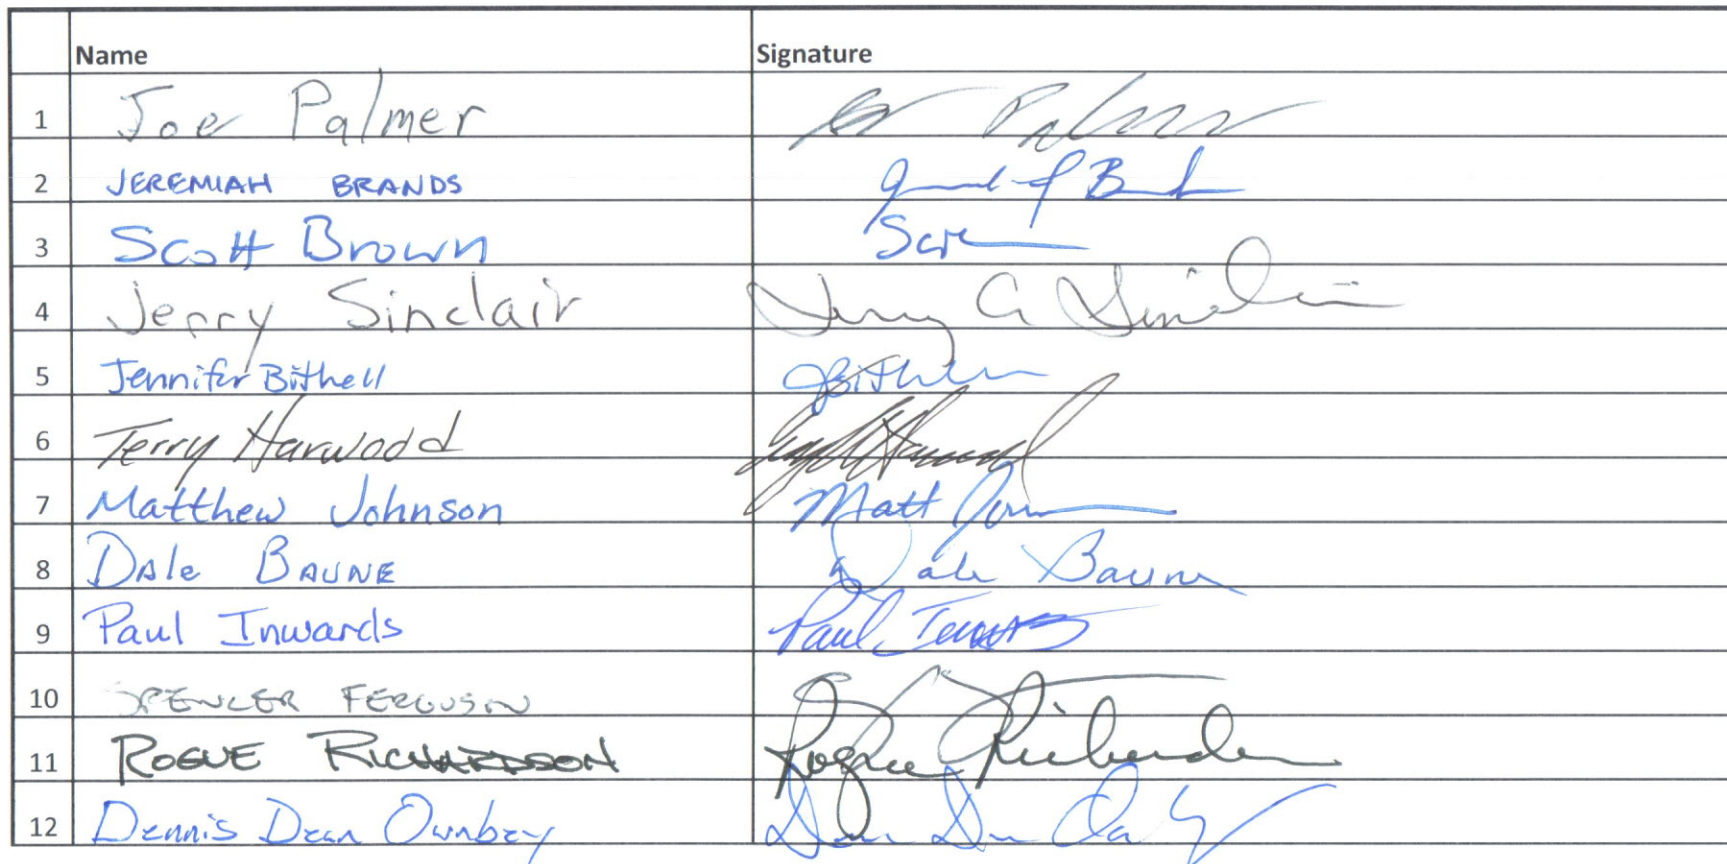 Name Signature
1 Joe Palmer Palmer
2 JEREMIAH BRANDS
3 Scott Brown
4 Jerry Sinclair Jerry A Sinclair
5 Jennifer Bithell JBithell
6 Terry Harwood
7 Matthew Johnson Matt
8 Dale BAUNE Dale Baune
9 Paul Inwards Paul
10 SPENCER FERGUSON
11 ROGUE RICHARDSON Rogue Richardson
12 Dennis Dean Ownbey